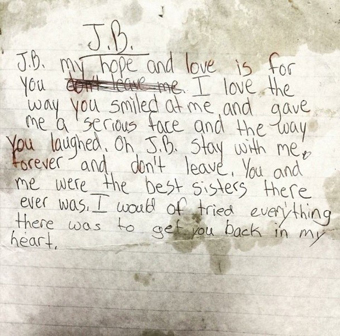 J.B.
J.B. my hope and love is for
you don't leave me. I love the
way you smiled at me and gave
me a serious face and the way
you laughed. Oh J.B. stay with me
forever and don't leave. You and
me were the best sisters there
ever was. I would of tried everything
there was to get you back in my
heart.